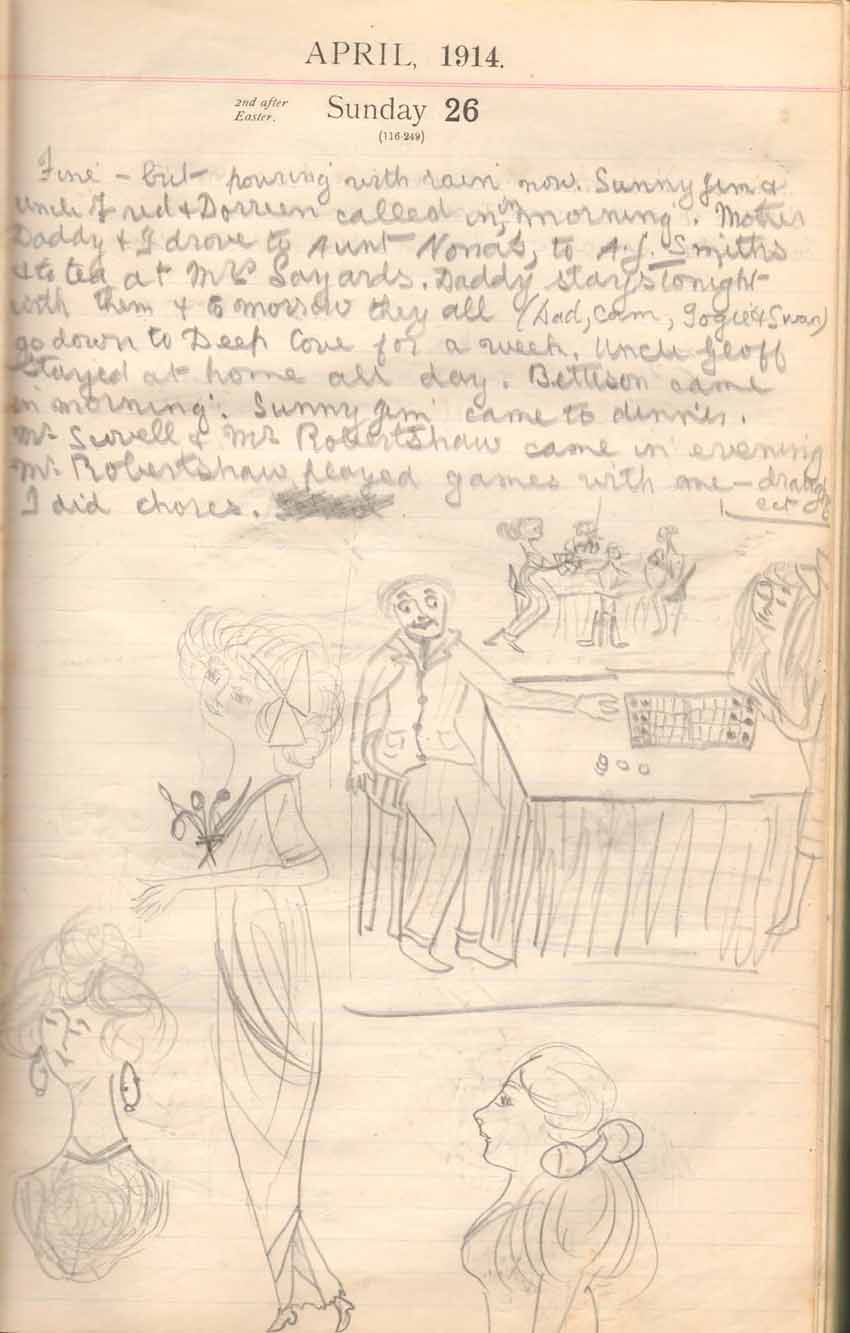 APRIL, 1914.
2nd after
Easter.
Sunday 26
(116-249)
Fine - but pouring with rain now. Sunny Jim &
Uncle Fred & Dorreen called in, in morning. Mother
Daddy & I drove to Aunt Nona's, to A.J. Smiths
& to tea at Mrs Sayards. Daddy stays tonight
with them & tomorrow they all (Dad, Cam, Gogie & Swan)
go down to Deep Cove for a week. Uncle Geoff
stayed at home all day. Bettison came
in morning. Sunny Jim came to dinner.
Mr Sewell & Mr Robertshaw came in evening
Mr Robertshaw played games with me -
I did chores.